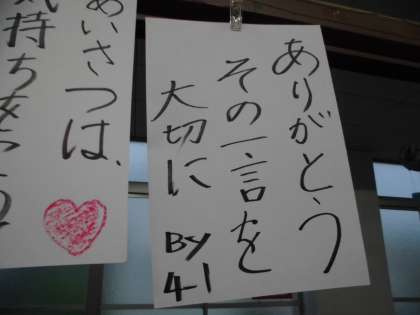 ありがとう
その一言を
大切に
BY
41
あいさつは、
気持ち